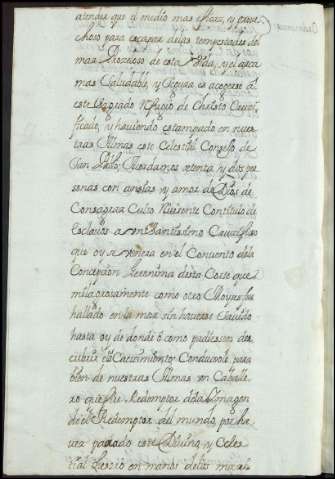 atender que el medio mas eficaz, y prove
choso para escapar de las tempestades del
mar Proceloso de esta Vida, y el ancora
mas Saludable, y Segura es acogerse a
este Sagrado Refugio de Christo Cruci
ficado, y haviendo estampado en nues
tras Almas este Celestial Consejo de
San Pablo; Acordamos setenta y dos per
sonas con anelos y amor de Dios de
Consagrar Culto Reverente Con titulo de
Esclavos a un Santissimo Crucifixo
que oy se venera en el Convento de la
Concepcion Geronima desta Corte que
milagrosamente como otro Moyses fue
hallado en la mar sin haverse Savido
hasta oy de donde ó como pudiesen des
cubrir su Condujole para
bien de nuestras Almas un Caballe
ro que fue Redemptor de la Imagen
de el Redemptor del mundo, por ha
ver parado este Divino, y Celes
tial en manos de los